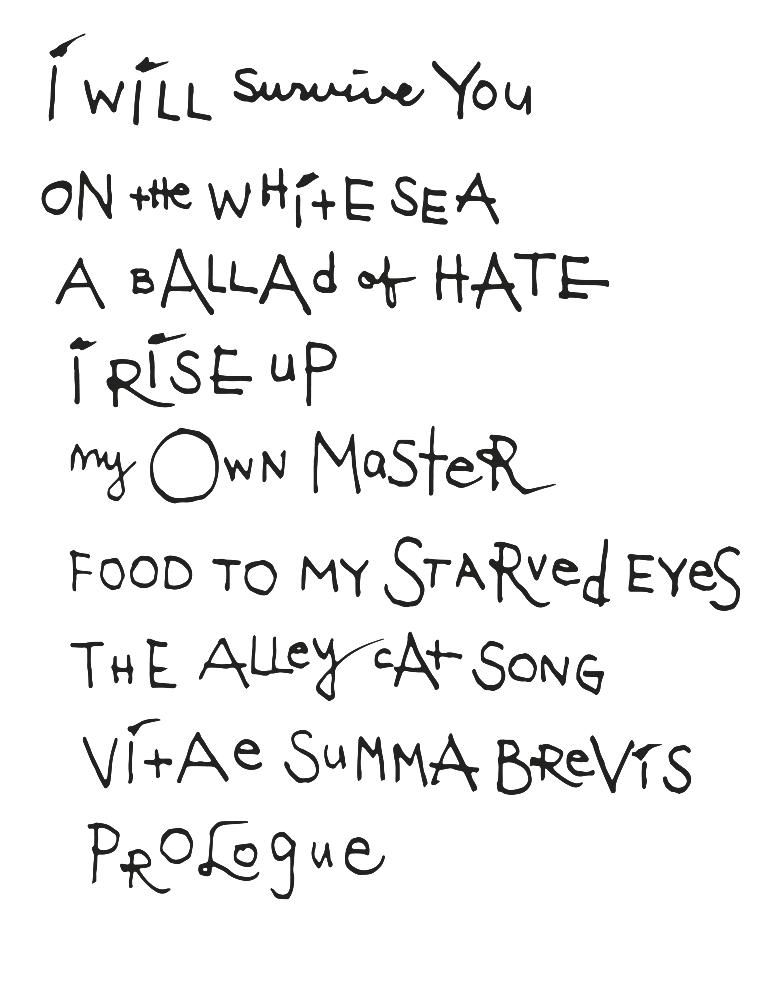 I WILL Survive You
ON the WHITE SEA
A BALLAd of HATE
I RISE UP
my OWN MasteR
FOOD TO MY STARved EYeS
THE ALLey cAt SONG
VItAe SuMMA BReVIS
PROLogue